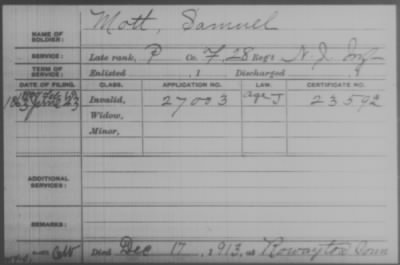 Mott, Samuel
NAME OF SOLDIER:
SERVICE: Late rank, P Co. F, 28 Reg't N. J. Inf
TERM OF SERVICE: Enlisted , 1 Discharged , 1
DATE OF FILING. CLASS. APPLICATION NO. LAW. CERTIFICATE NO.
1863 June 23 Invalid, 27003 age J 23592
Widow,
Minor,
ADDITIONAL SERVICES:
REMARKS:
Died Dec 17, 1913, at Rowayton Conn